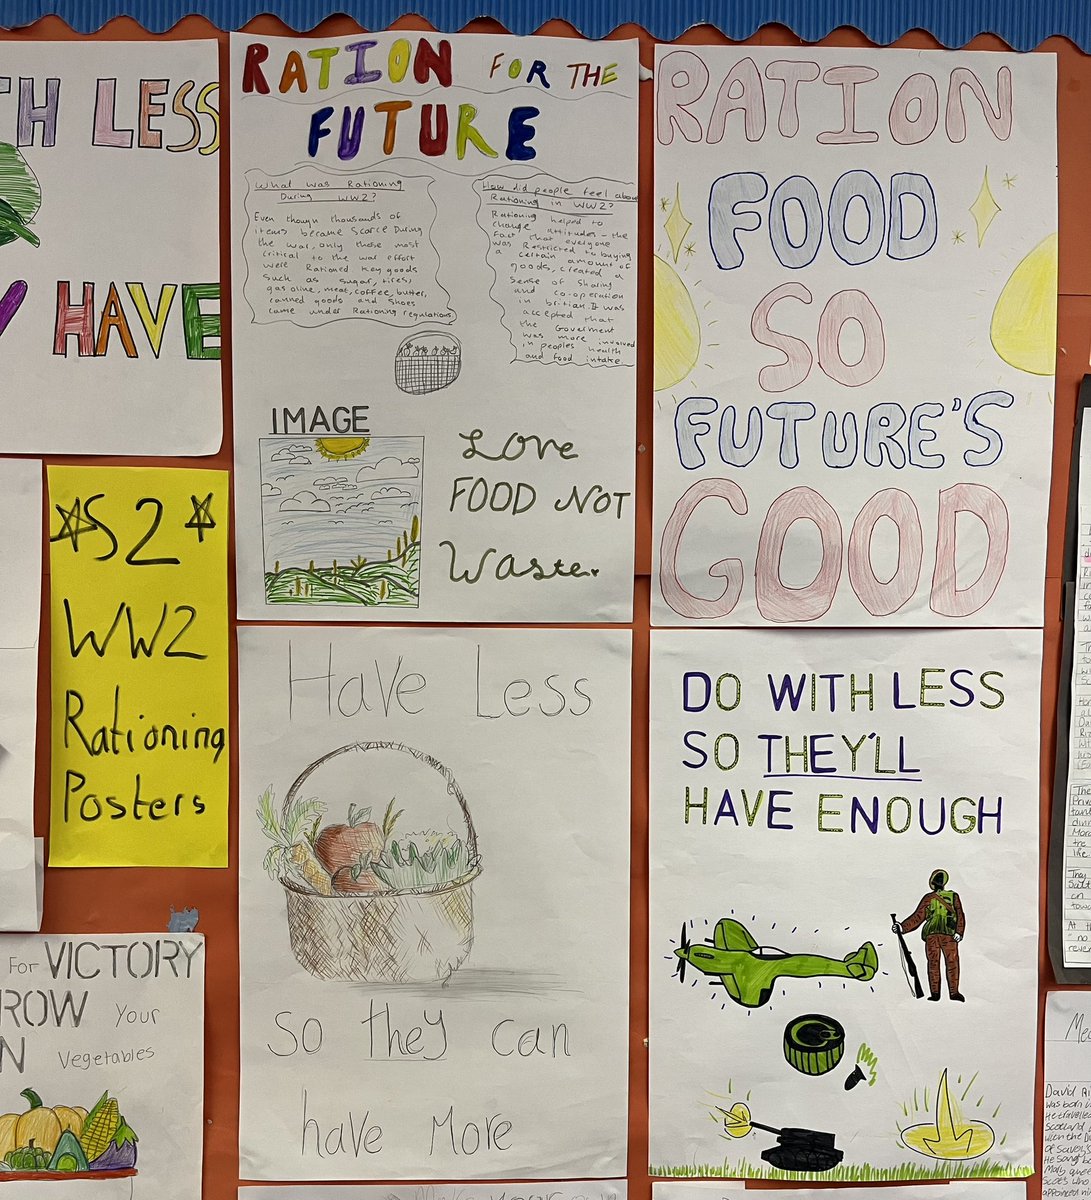 TH LESS
HAVE
*S2*
WW2
Rationing
Posters
FOR VICTORY
ROW YOUR
N VEGETABLES
RATION FOR THE
FUTURE
What was Rationing
During WW2?
Even though thousands of
items became scarce During
the war, only those most
critical to the war effort
were Rationed Key goods
such as sugar, tires,
gasoline, meat, coffee, butter,
canned goods and shoes
came under Rationing regulations.
How did people feel about
Rationing in WW2?
Rationing helped to
change attitudes - the
fact that everyone
was Restricted to buying
a certain amount of
goods, created a
sense of sharing
and co-operation
in britian. It was
accepted that
the Goverment
was more involved
in peoples health
and food intake
IMAGE
Love
FOOD NOT
Waste.
RATION
FOOD
SO
FUTURE'S
GOOD
Have Less
So they can
have More
DO WITH LESS
SO THEY'LL
HAVE ENOUGH
David
was born
He travelled
Scotland